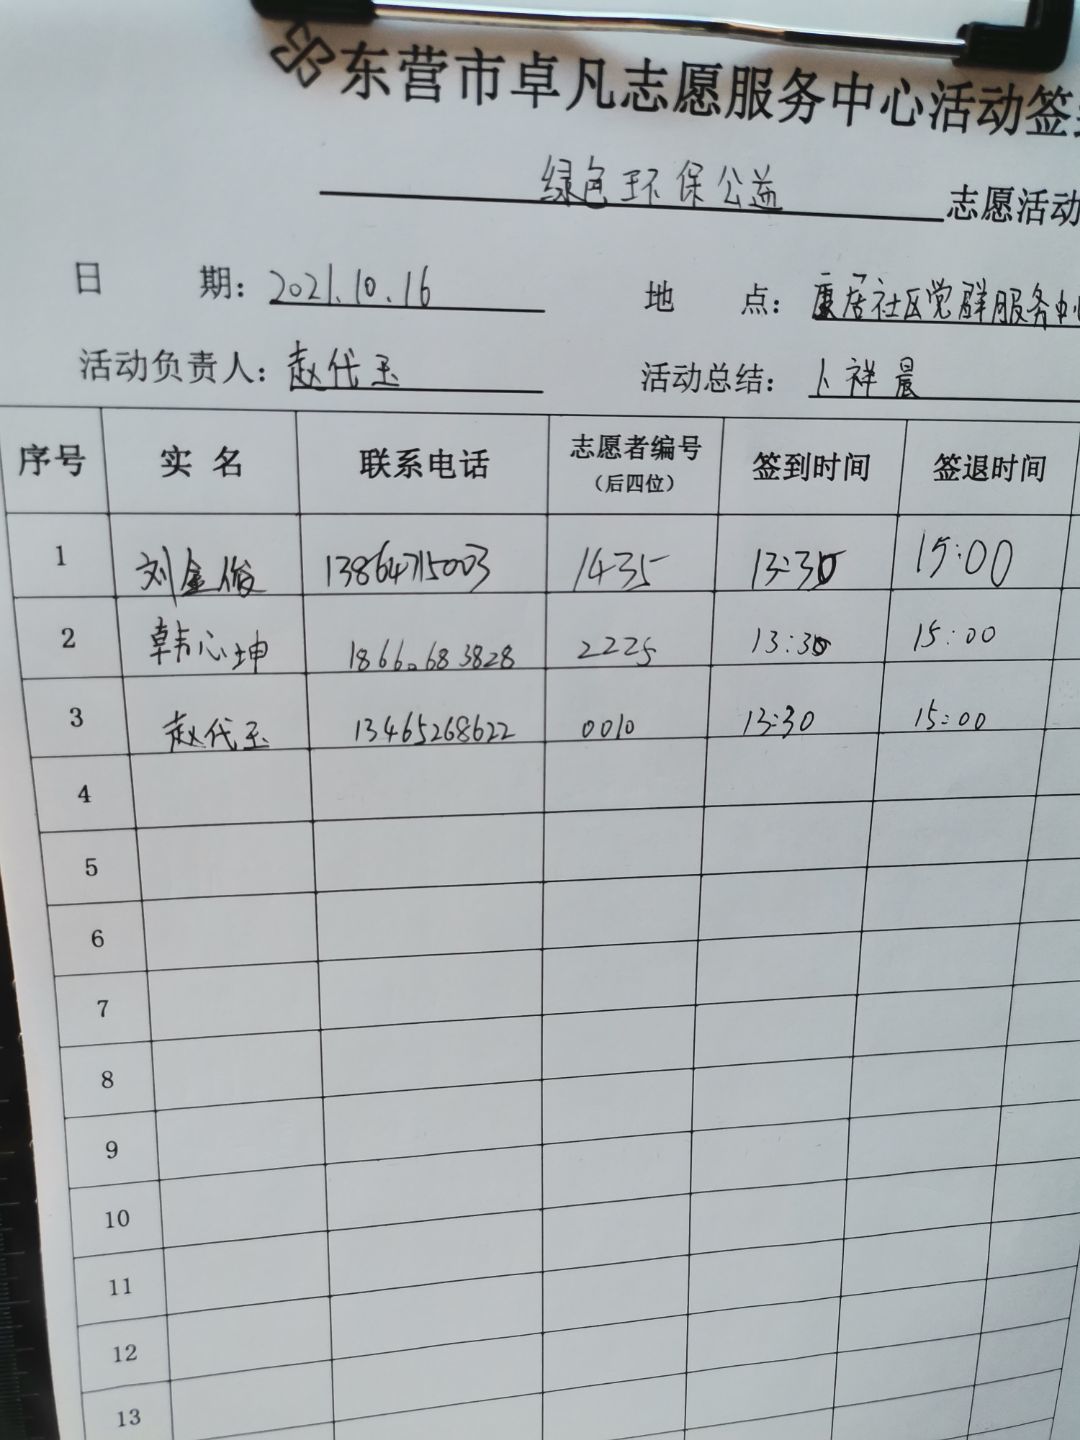 东营市卓凡志愿服务中心活动签到
绿色环保公益 志愿活动
日 期：2021.10.16 地 点：康居社区党群服务中心
活动负责人：赵代玉 活动总结：卜祥晨
序号 实 名 联系电话 志愿者编号（后四位） 签到时间 签退时间
1 刘金俊 13864715003 1435 13:30 15:00
2 韩心坤 18660683828 2225 13:30 15:00
3 赵代玉 13465268622 0010 13:30 15:00
4
5
6
7
8
9
10
11
12
13